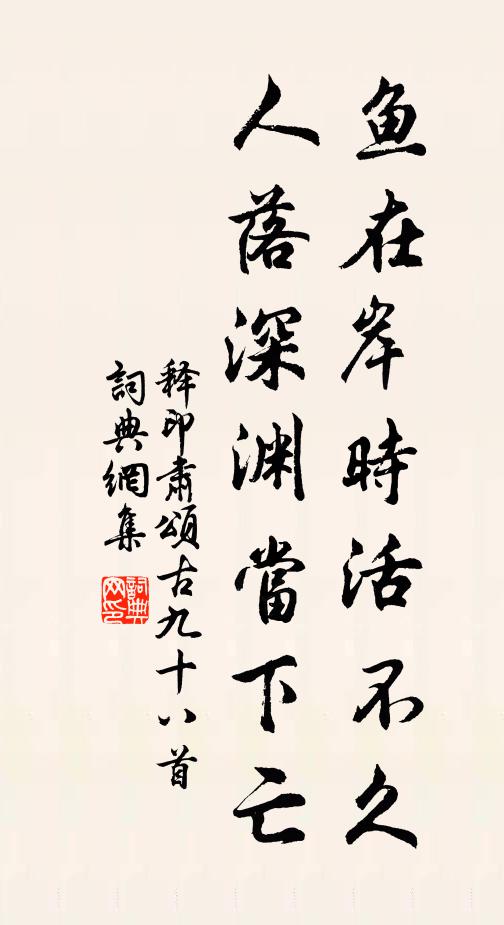 鱼在岸時活不久
人落深渊當下亡
释印肅頌古九十八首
詞典網集
詞典網印